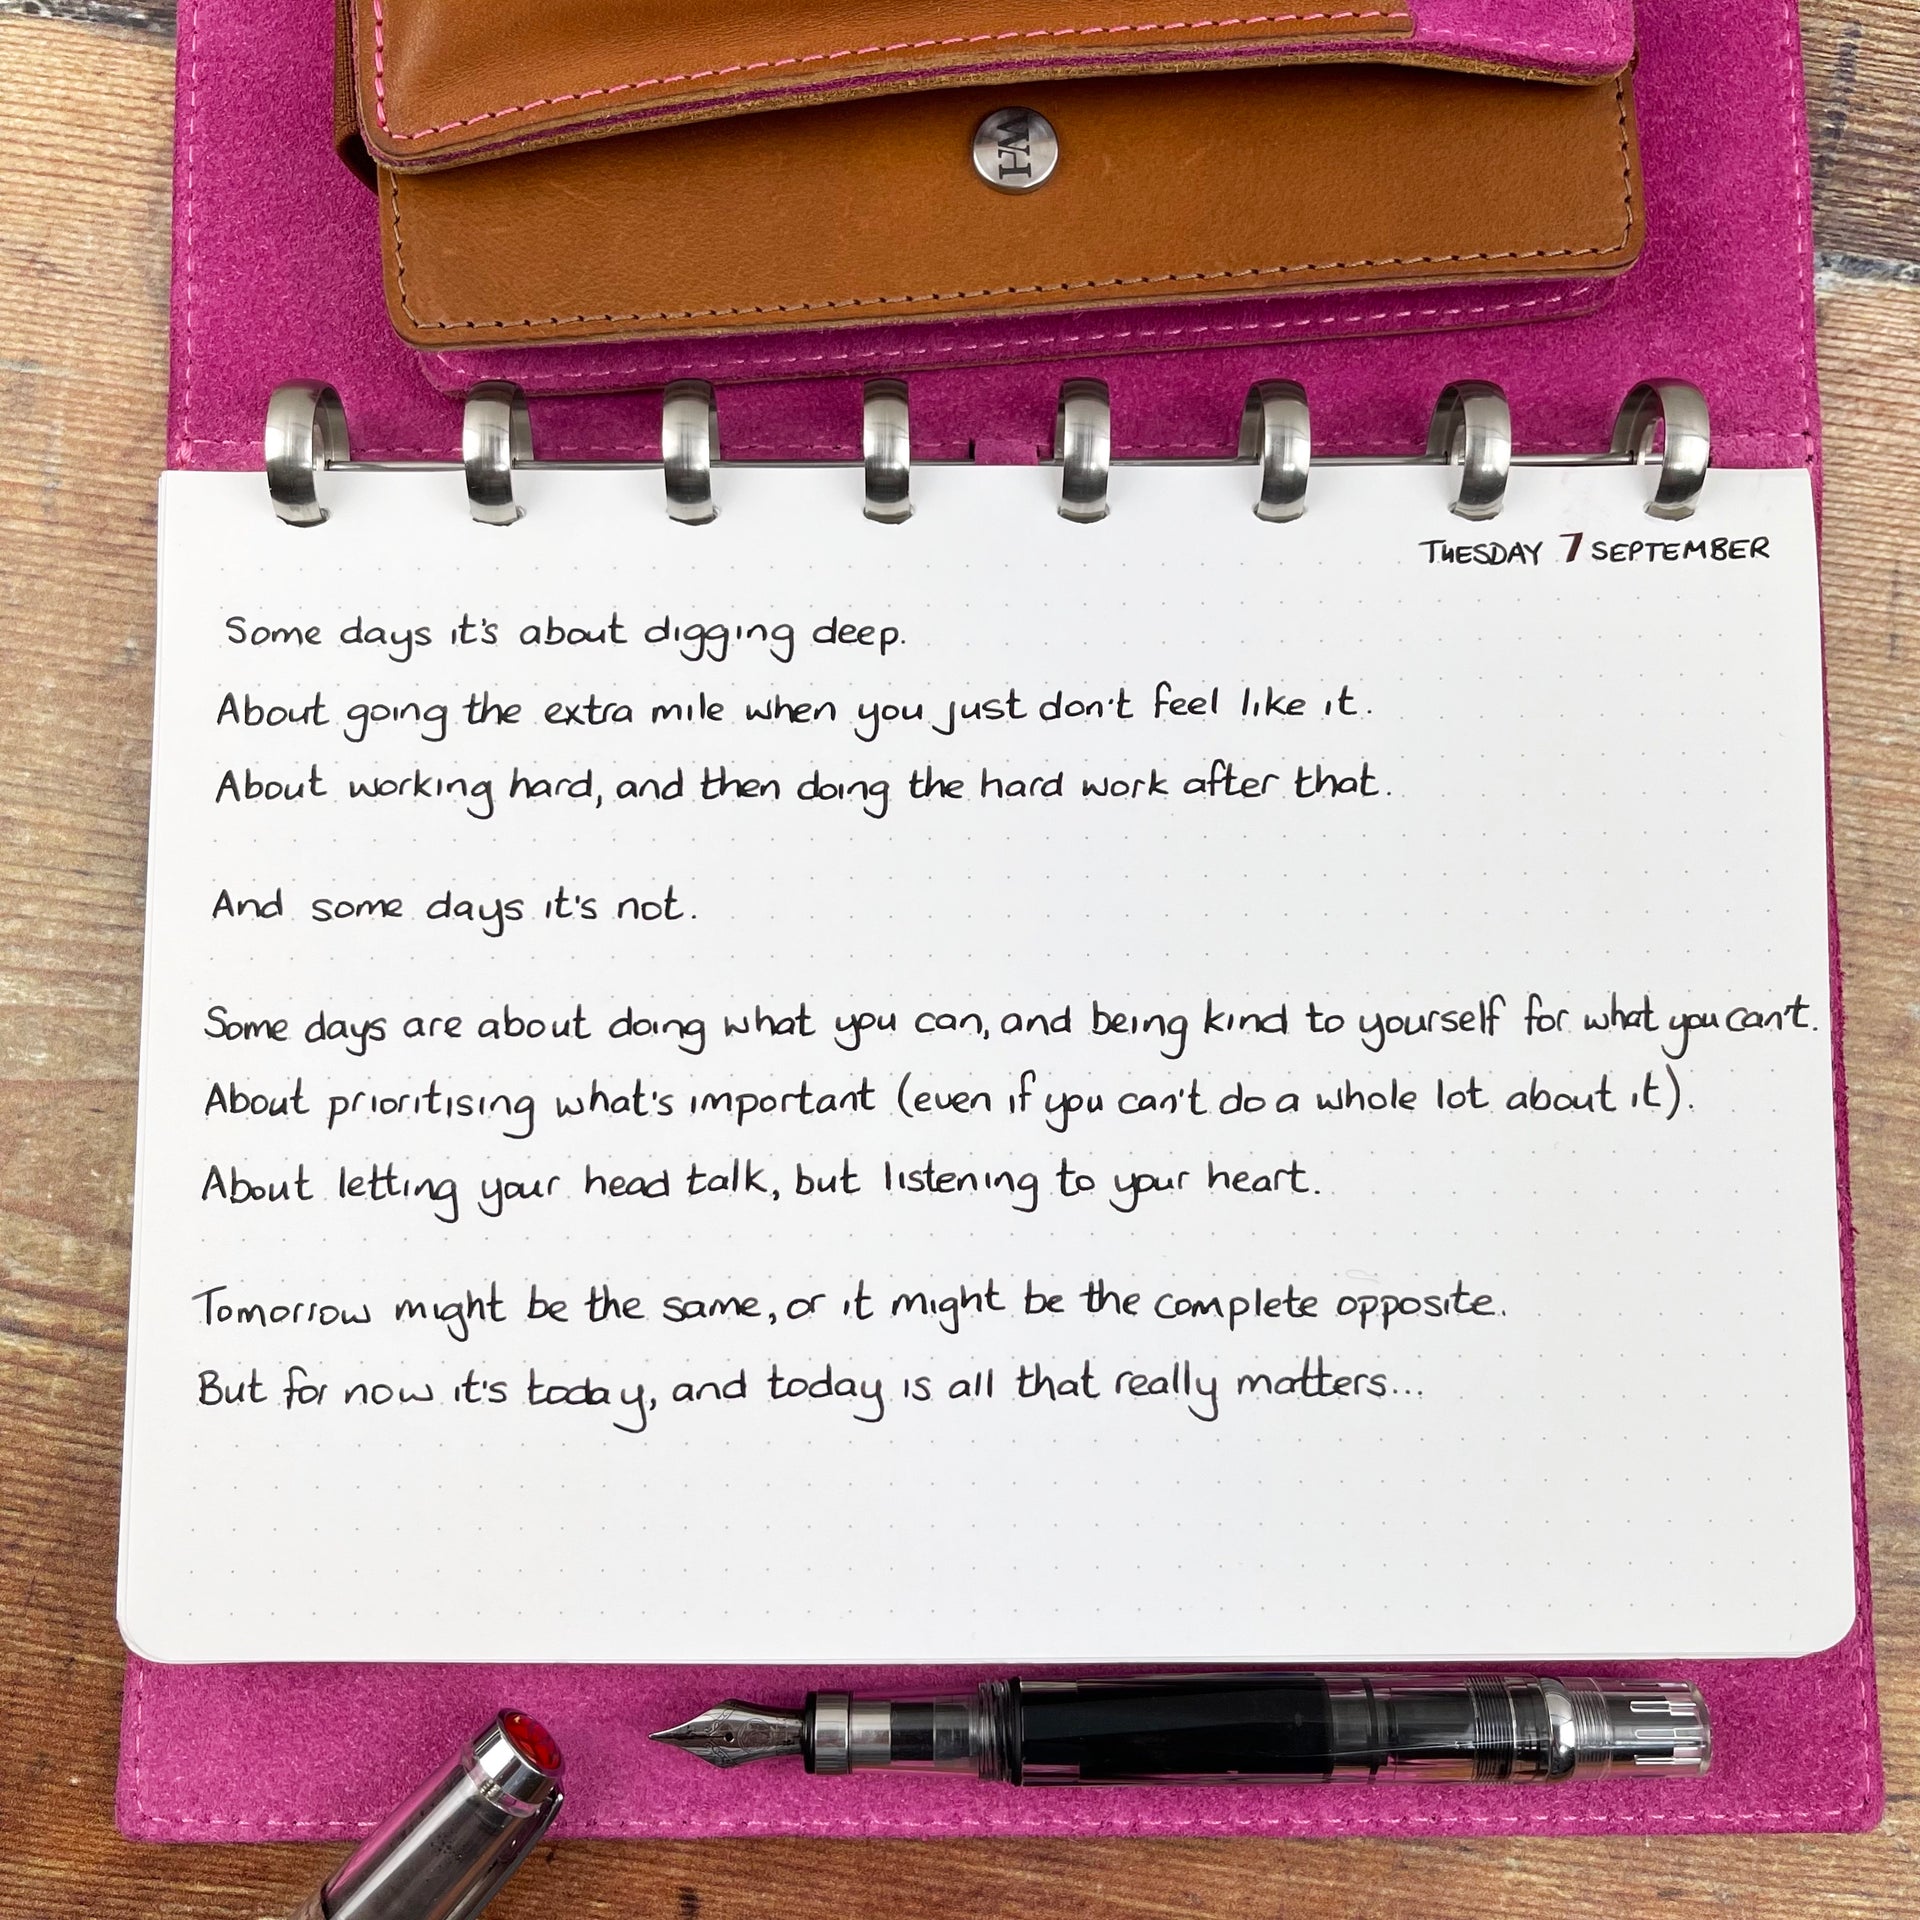 TUESDAY 7 SEPTEMBER
Some days it's about digging deep.
About going the extra mile when you just don't feel like it.
About working hard, and then doing the hard work after that.
And some days it's not.
Some days are about doing what you can, and being kind to yourself for what you can't.
About prioritising what's important (even if you can't do a whole lot about it).
About letting your head talk, but listening to your heart.
Tomorrow might be the same, or it might be the complete opposite.
But for now it's today, and today is all that really matters...